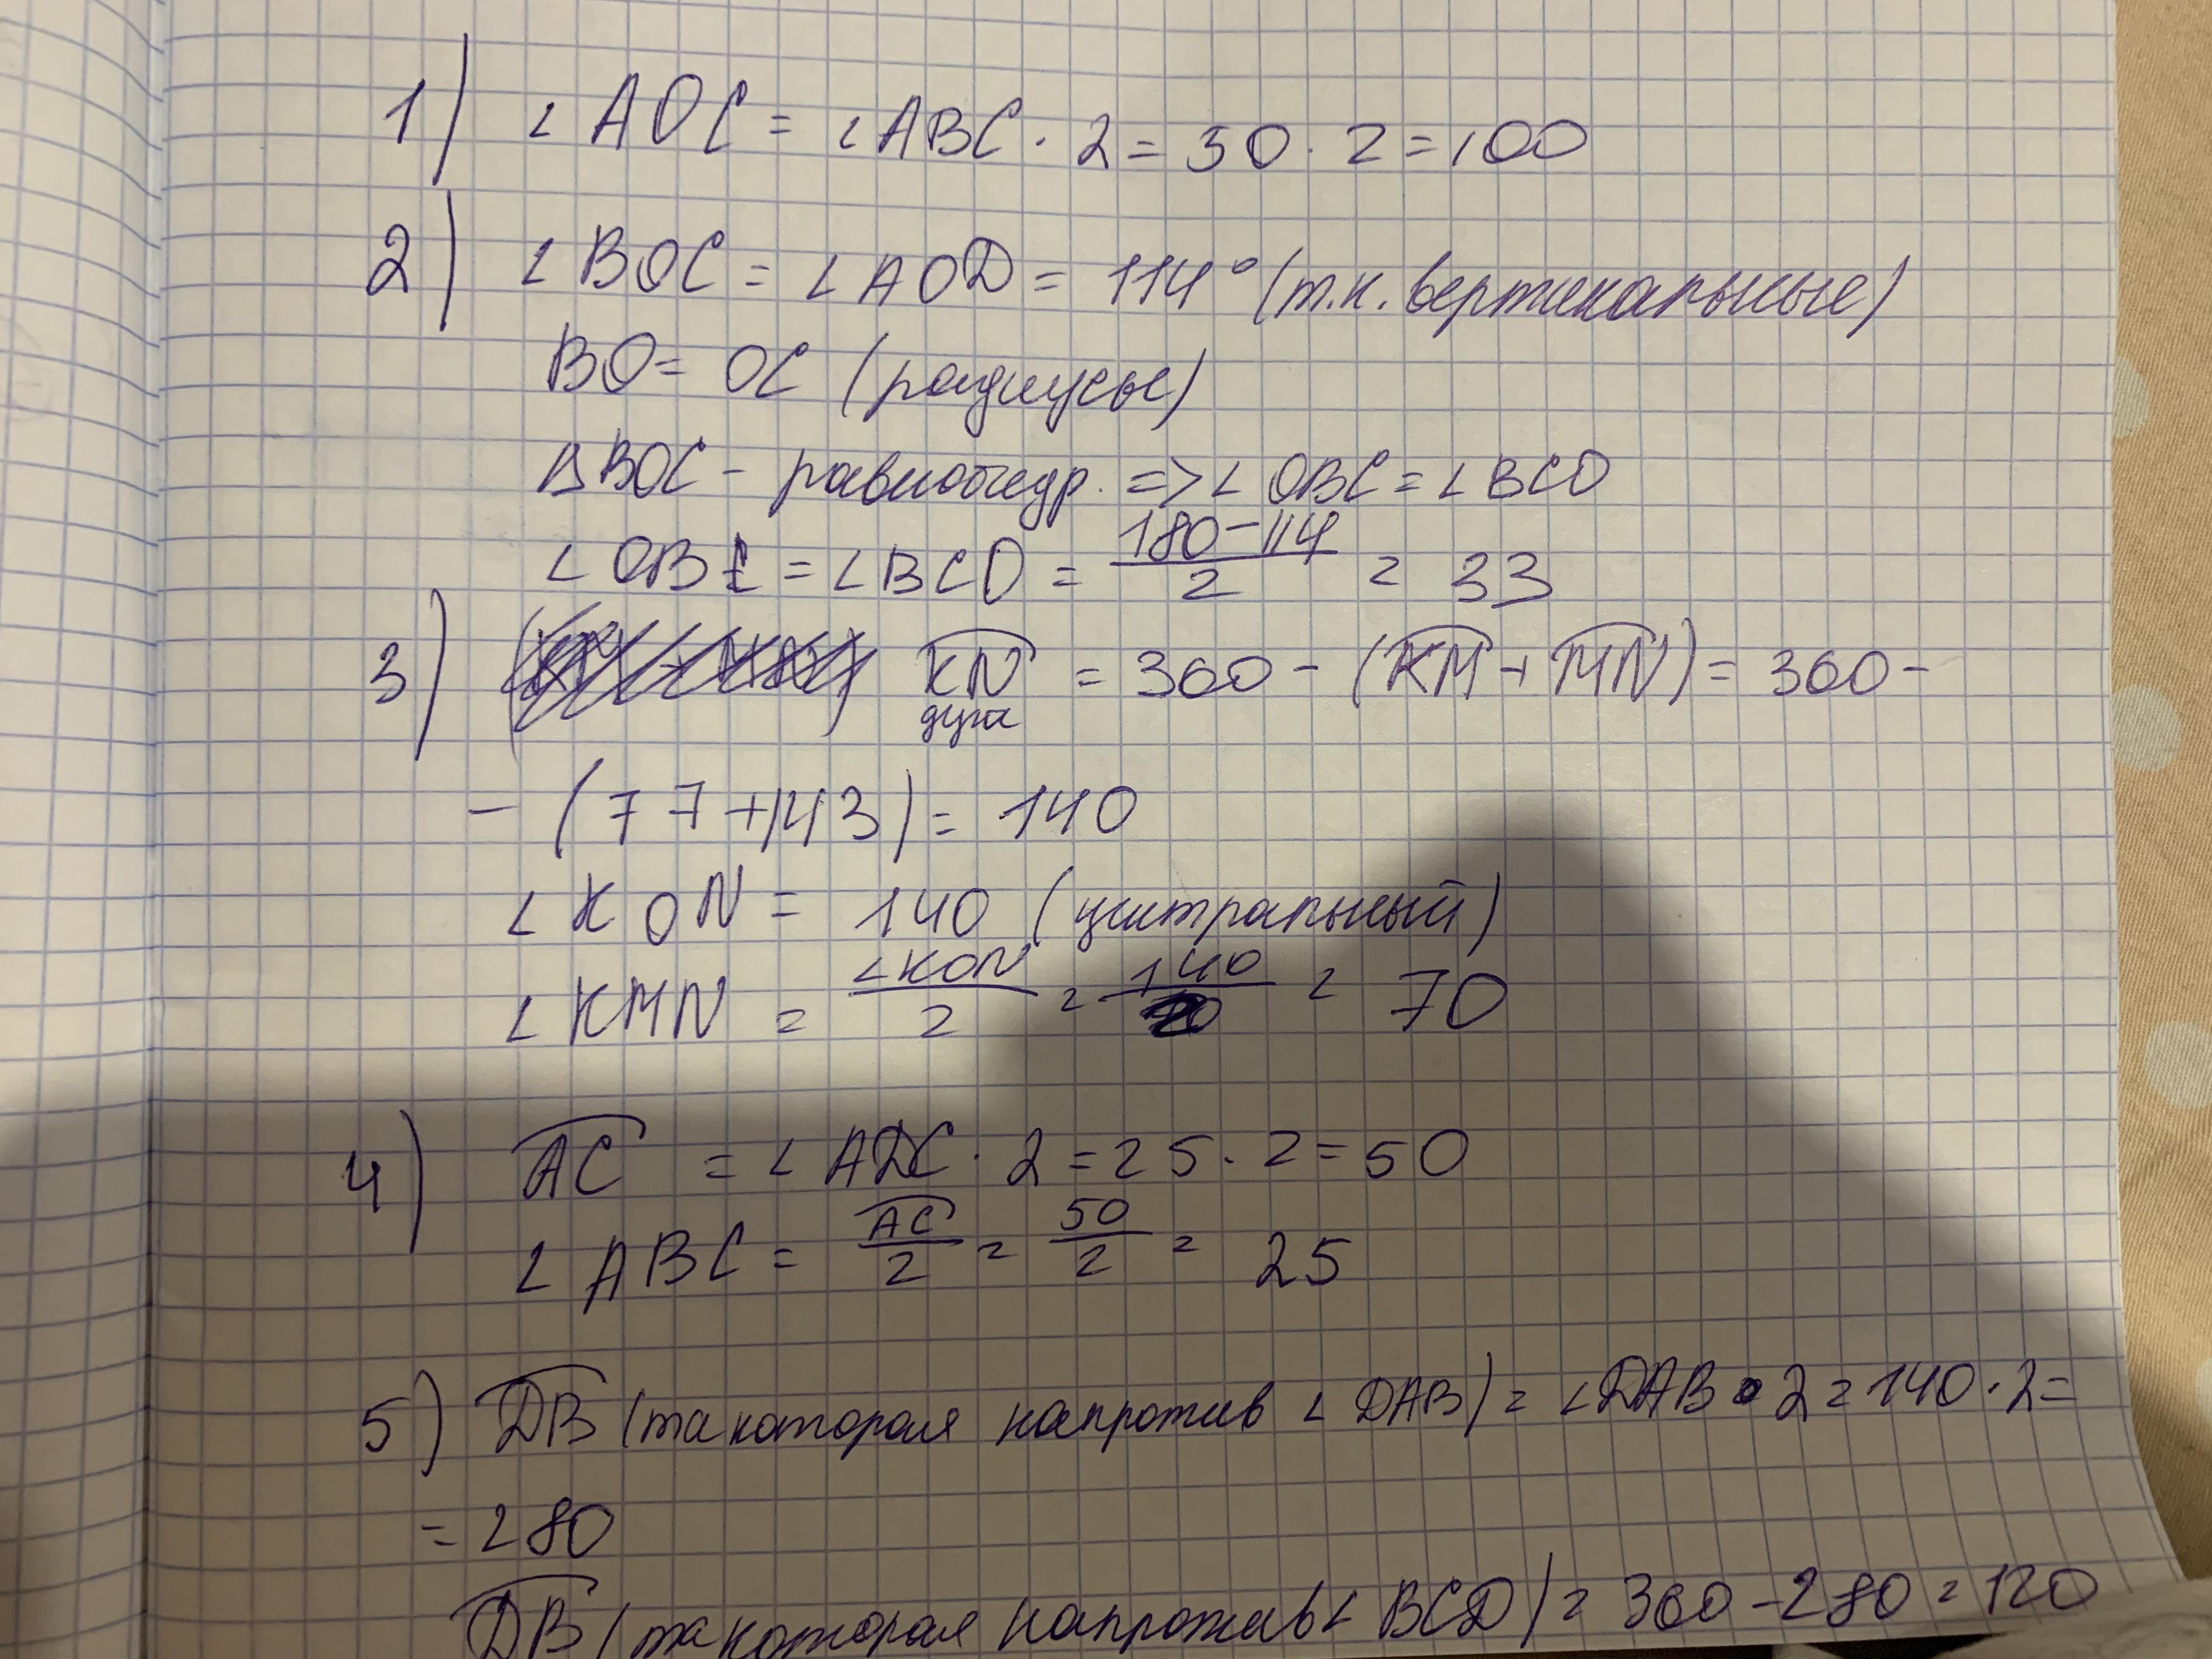 1) ∠AOC = ∠ABC · 2 = 50 · 2 = 100
2) ∠BOC = ∠AOD = 114° (т.к. вертикальные)
BO = OC (радиусы)
ΔBOC - равнобедр. => ∠OBC = ∠BCO
∠OBC = ∠BCO = (180-114)/2 = 33
3) KN = 360 - (KM + MN) = 360 -
дуга
- (77+143) = 140
∠KON = 140 (центральный)
∠KMN = ∠KON/2 = 140/2 = 70
4) AC = ∠ADC · 2 = 25 · 2 = 50
∠ABC = AC/2 = 50/2 = 25
5) DB (та которая напротив ∠DAB) = ∠DAB · 2 = 140 · 2 =
= 280
DB (та которая напротив ∠BCD) = 360 - 280 = 120